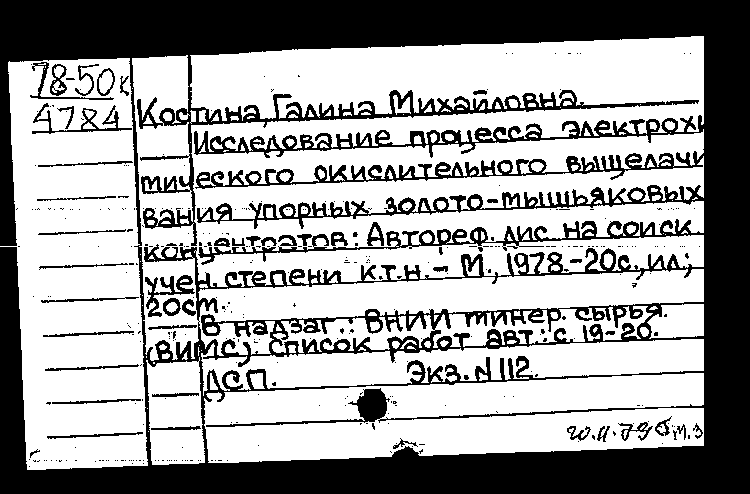 78-50к
4784
Костина, Галина Михайловна.
Исследование процесса электрохи
мического окислительного выщелачи
вания упорных золото-мышьяковых
концентратов: Автореф. дис на соиск
учен. степени к.т.н. - М., 1978.-20с., ил.;
20см.
В надзаг.: ВНИИ минер. сырья.
(ВИМС). Список работ авт.: с. 19-20.
ДСП. Экз. N 112.